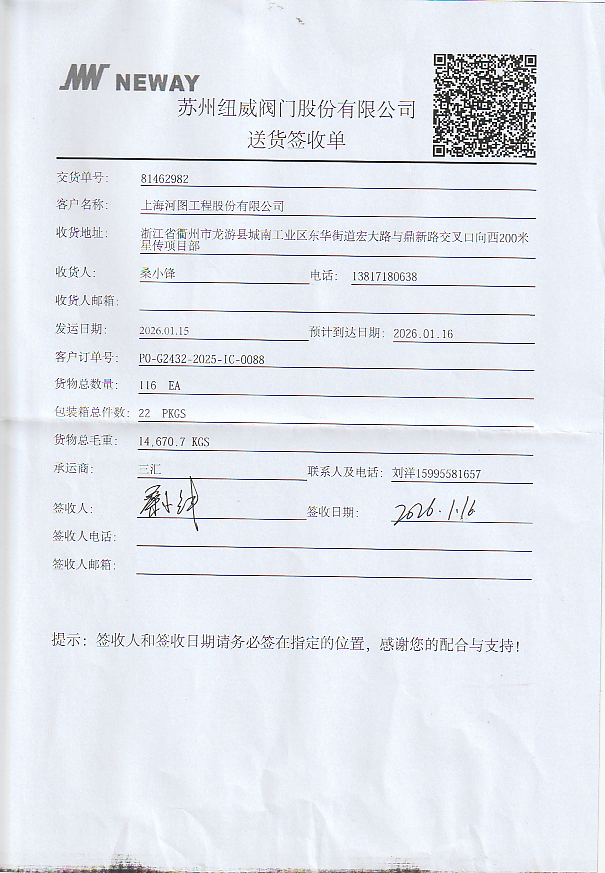 NEWAY
苏州纽威阀门股份有限公司
送货签收单
交货单号: 81462982
客户名称: 上海河图工程股份有限公司
收货地址: 浙江省衢州市龙游县城南工业区东华街道宏大路与鼎新路交叉口向西200米
星传项目部
收货人: 桑小锋 电话: 13817180638
收货人邮箱:
发运日期: 2026.01.15 预计到达日期: 2026.01.16
客户订单号: PO-G2432-2025-IC-0088
货物总数量: 116 EA
包装箱总件数: 22 PKGS
货物总毛重: 14,670.7 KGS
承运商: 三汇 联系人及电话: 刘洋15995581657
签收人: 签收日期: 2026.1.16
签收人电话:
签收人邮箱:
提示: 签收人和签收日期请务必签在指定的位置, 感谢您的配合与支持!